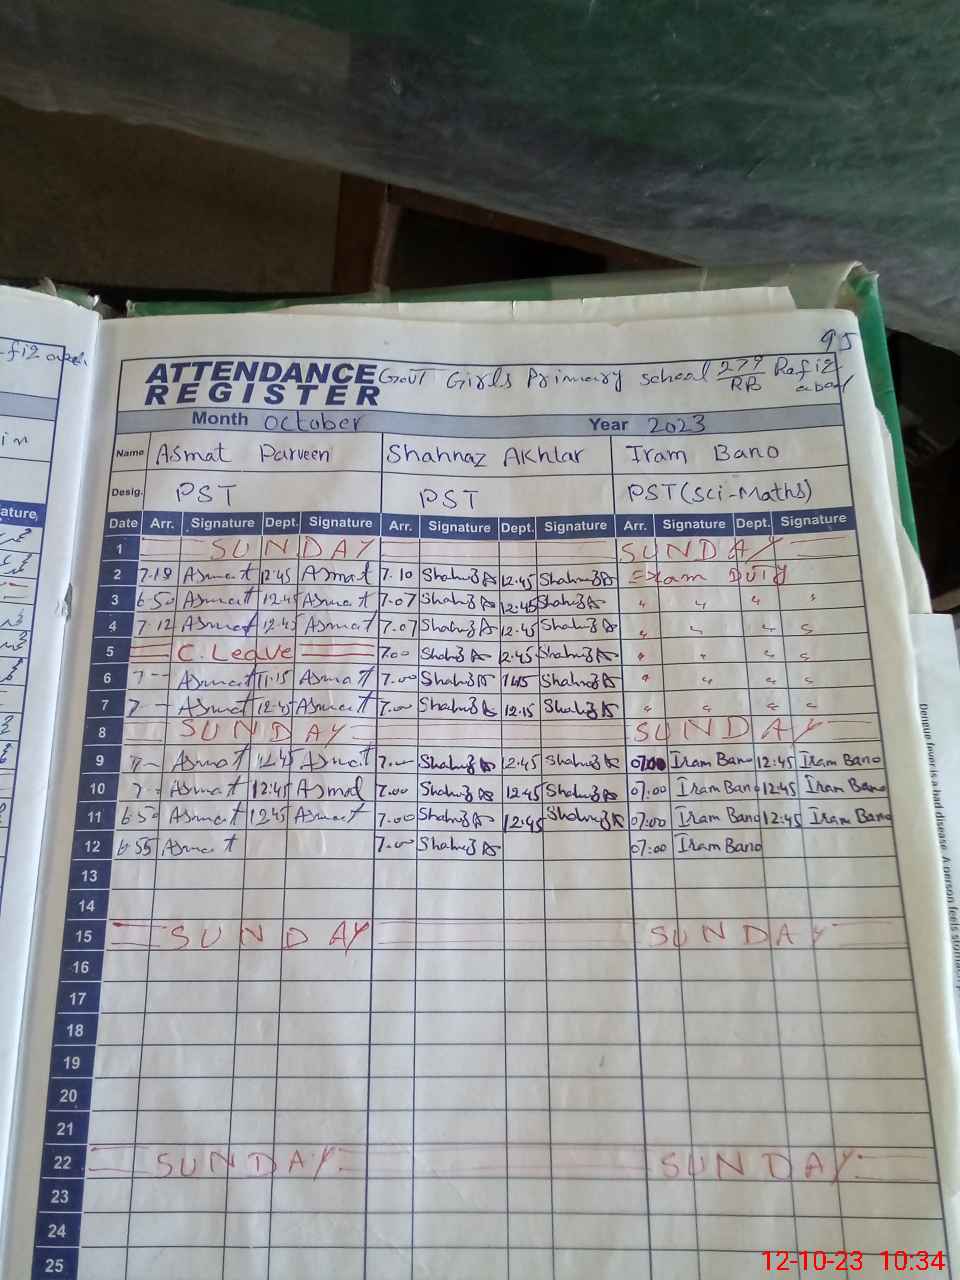 95
ATTENDANCE REGISTER Govt Girls Primary school 279/RB Rafiz abad
Month October Year 2023
Name Asmat Parveen Shahnaz Akhtar Iram Bano
Desig. PST PST PST (Sci-Maths)
Date Arr. Signature Dept. Signature Arr. Signature Dept. Signature Arr. Signature Dept. Signature
1 SUNDAY SUNDAY
2 7.18 Asmat 12.45 Asmat 7.10 Shahnaz A 12.45 Shahnaz A Exam Duty
3 6.50 Asmat 12.45 Asmat 7.07 Shahnaz A 12.45 Shahnaz A " " " "
4 7.12 Asmat 12.45 Asmat 7.07 Shahnaz A 12.45 Shahnaz A " " " "
5 C. Leave 7.00 Shahnaz A 12.45 Shahnaz A " " " "
6 7-- Asmat 11.15 Asmat 7.00 Shahnaz A Shahnaz A " " " "
7 7-- Asmat 12.45 Asmat 7.00 Shahnaz A 12.15 Shahnaz A " " " "
8 SUNDAY SUNDAY
9 7-- Asmat 12.45 Asmat 7.00 Shahnaz A 12.45 Shahnaz A 07:00 Iram Bano 12:45 Iram Bano
10 7-- Asmat 12.45 Asmat 7.00 Shahnaz A 12.45 Shahnaz A 07:00 Iram Bano 12:45 Iram Bano
11 6.50 Asmat 12.45 Asmat 7.00 Shahnaz A 12:45 Shahnaz A 07:00 Iram Bano 12:45 Iram Bano
12 6.55 Asmat 7.00 Shahnaz A 07:00 Iram Bano
13
14
15 SUNDAY SUNDAY
16
17
18
19
20
21
22 SUNDAY SUNDAY
23
24
25
Dengue fever is a bad disease. A person feels
12-10-23 10:34